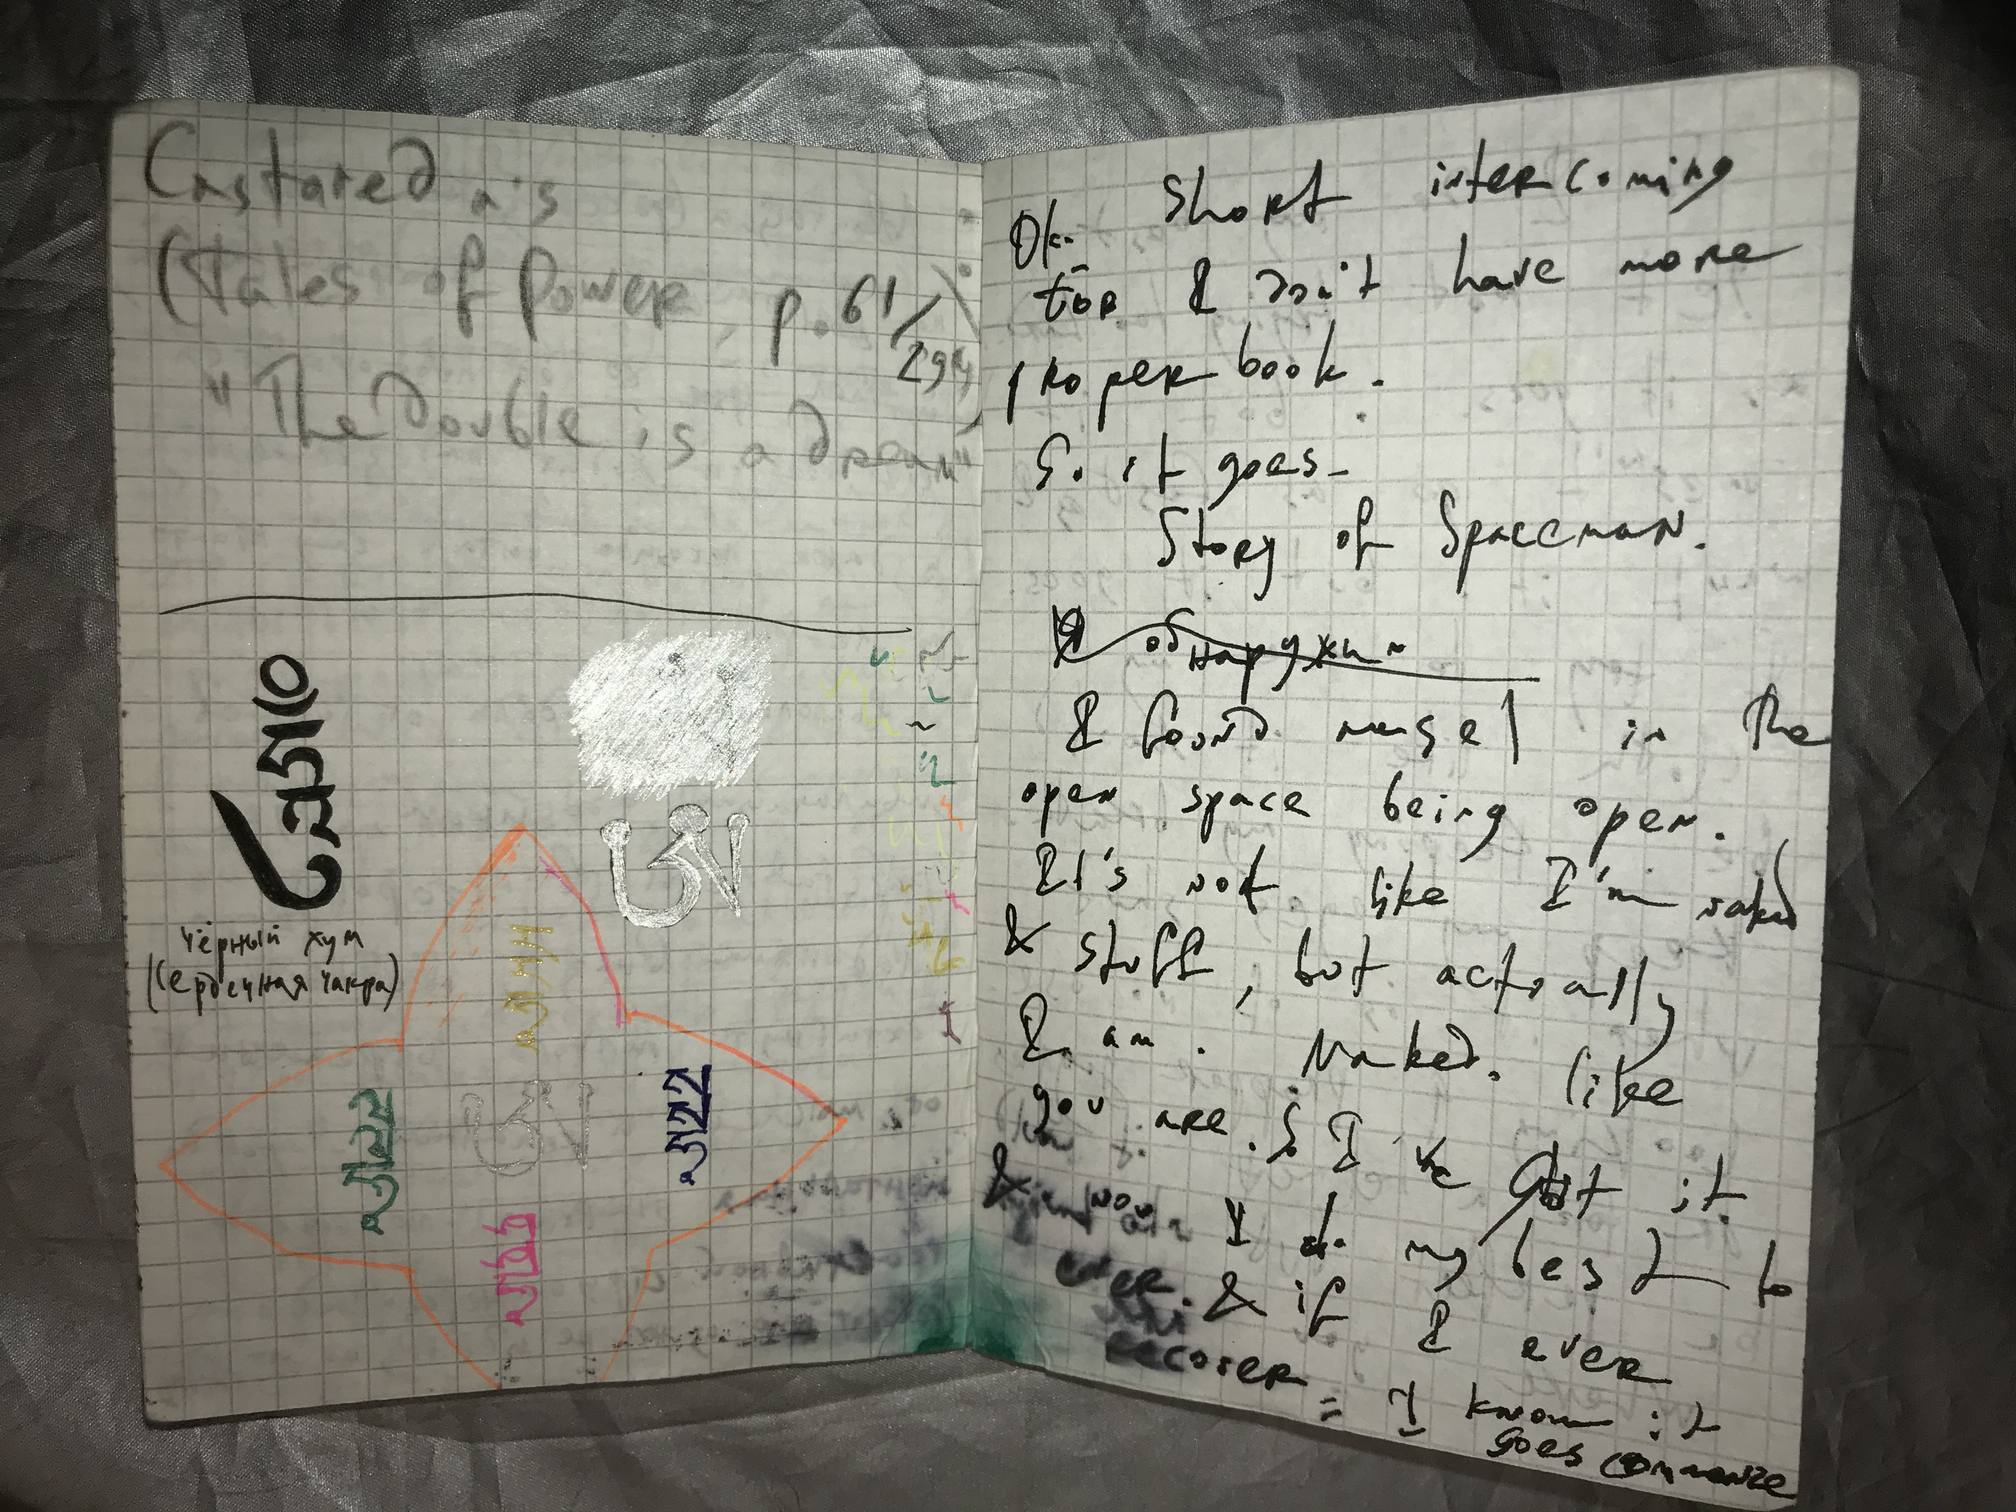 Castaned a's
(Tales of Power, p. 61/294)
"The Double is a dream"
чёрный хум
(сердечная чакра)
Ok. Short intercoming
for I don't have more
proper book.
So it goes-
Story of Spaceman.
Я обнаружил
I found myself in the
open space being open.
It's not like I'm naked
& stuff, but actually
I am. Naked. like
you are. So I've got it
& now I do my best to
& if I ever
recover = I know it
goes